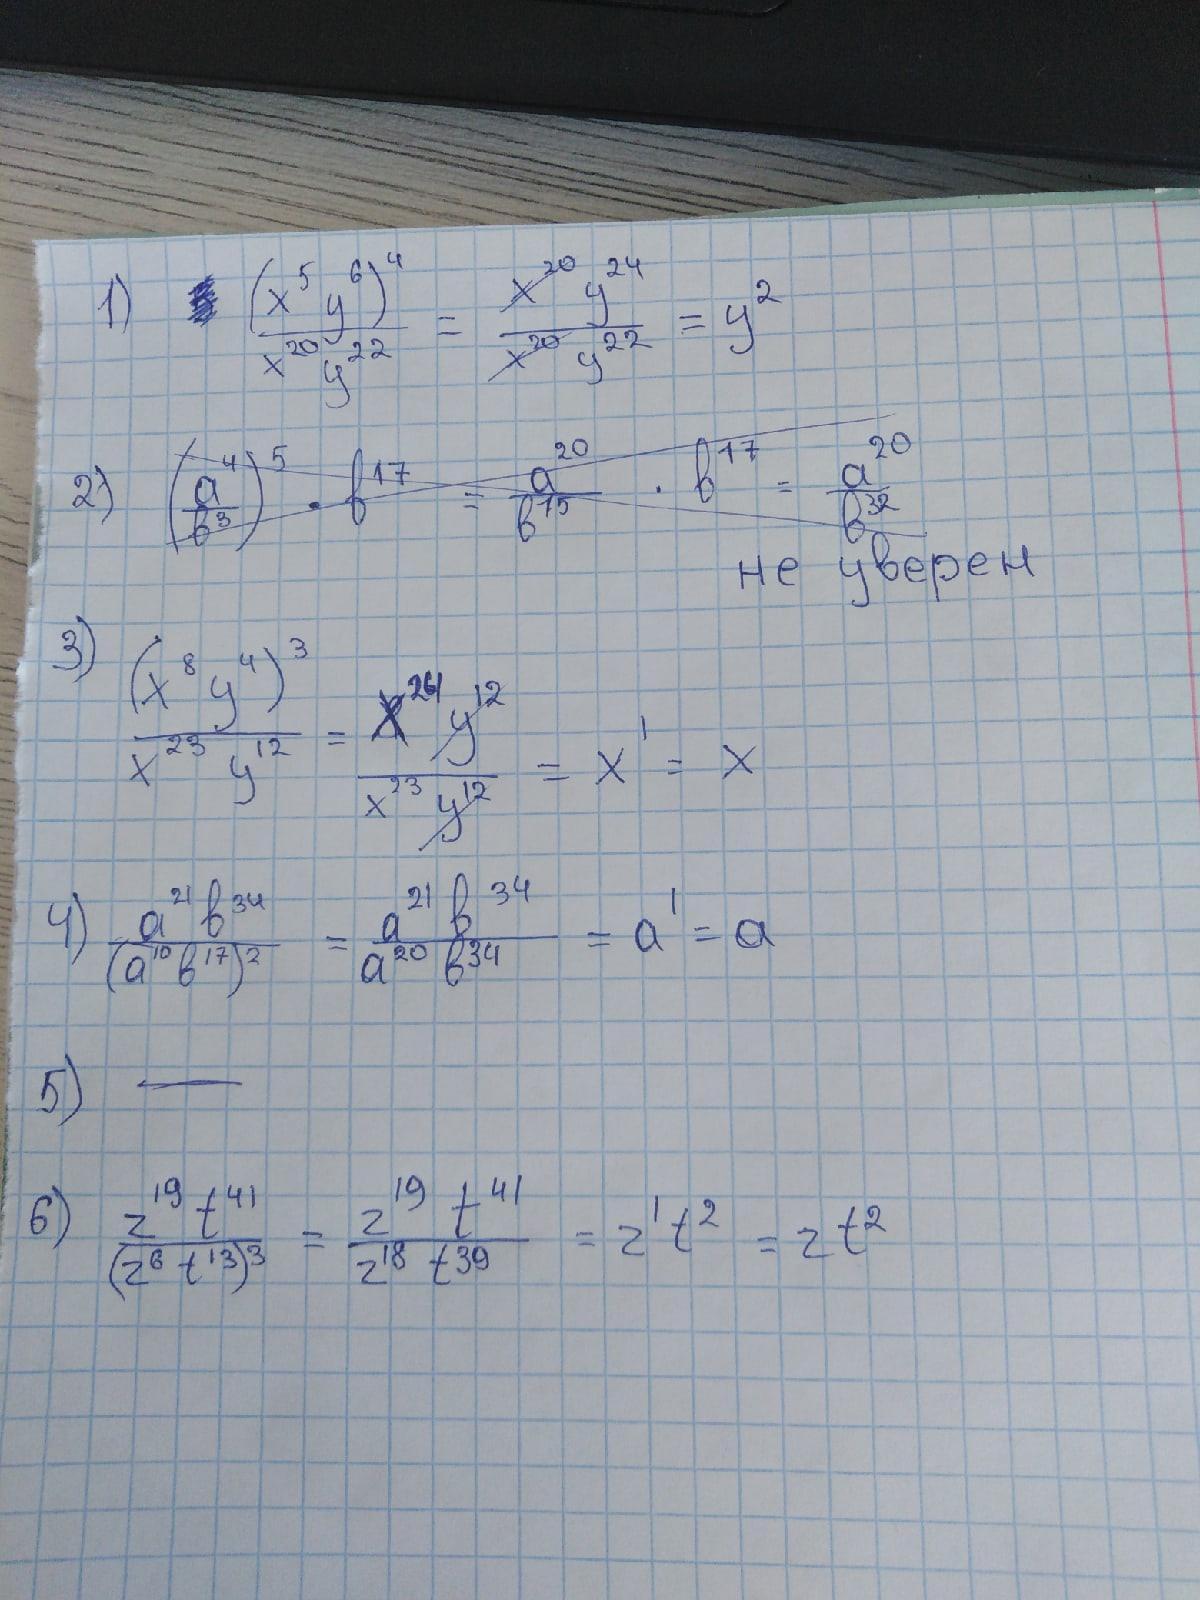 1) (x⁵ y⁶)⁴ / x²⁰ y²² = x²⁰ y²⁴ / x²⁰ y²² = y²
2) (a⁴ / b³)⁵ · b¹⁷ = a²⁰ / b¹⁵ · b¹⁷ = a²⁰ / b³²
не уверен
3) (x⁸ y⁴)³ / x²³ y¹² = x²⁴ y¹² / x²³ y¹² = x¹ = x
4) a²¹ b³⁴ / (a¹⁰ b¹⁷)² = a²¹ b³⁴ / a²⁰ b³⁴ = a¹ = a
5) —
6) z¹⁹ t⁴¹ / (z⁶ t¹³)³ = z¹⁹ t⁴¹ / z¹⁸ t³⁹ = z¹ t² = z t²